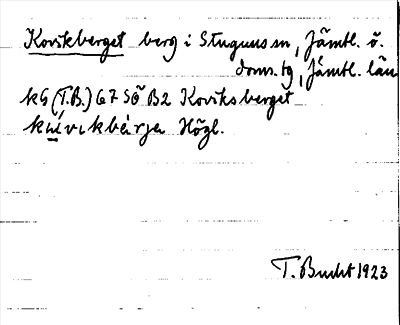 Kovikberget berg i Stuguns sn, Jämtl. ö.
doms. tg, Jämtl. län
k5 (T.B.) 67 SÖ B2 Koviksberget
Högl.
T. Bucht 1923